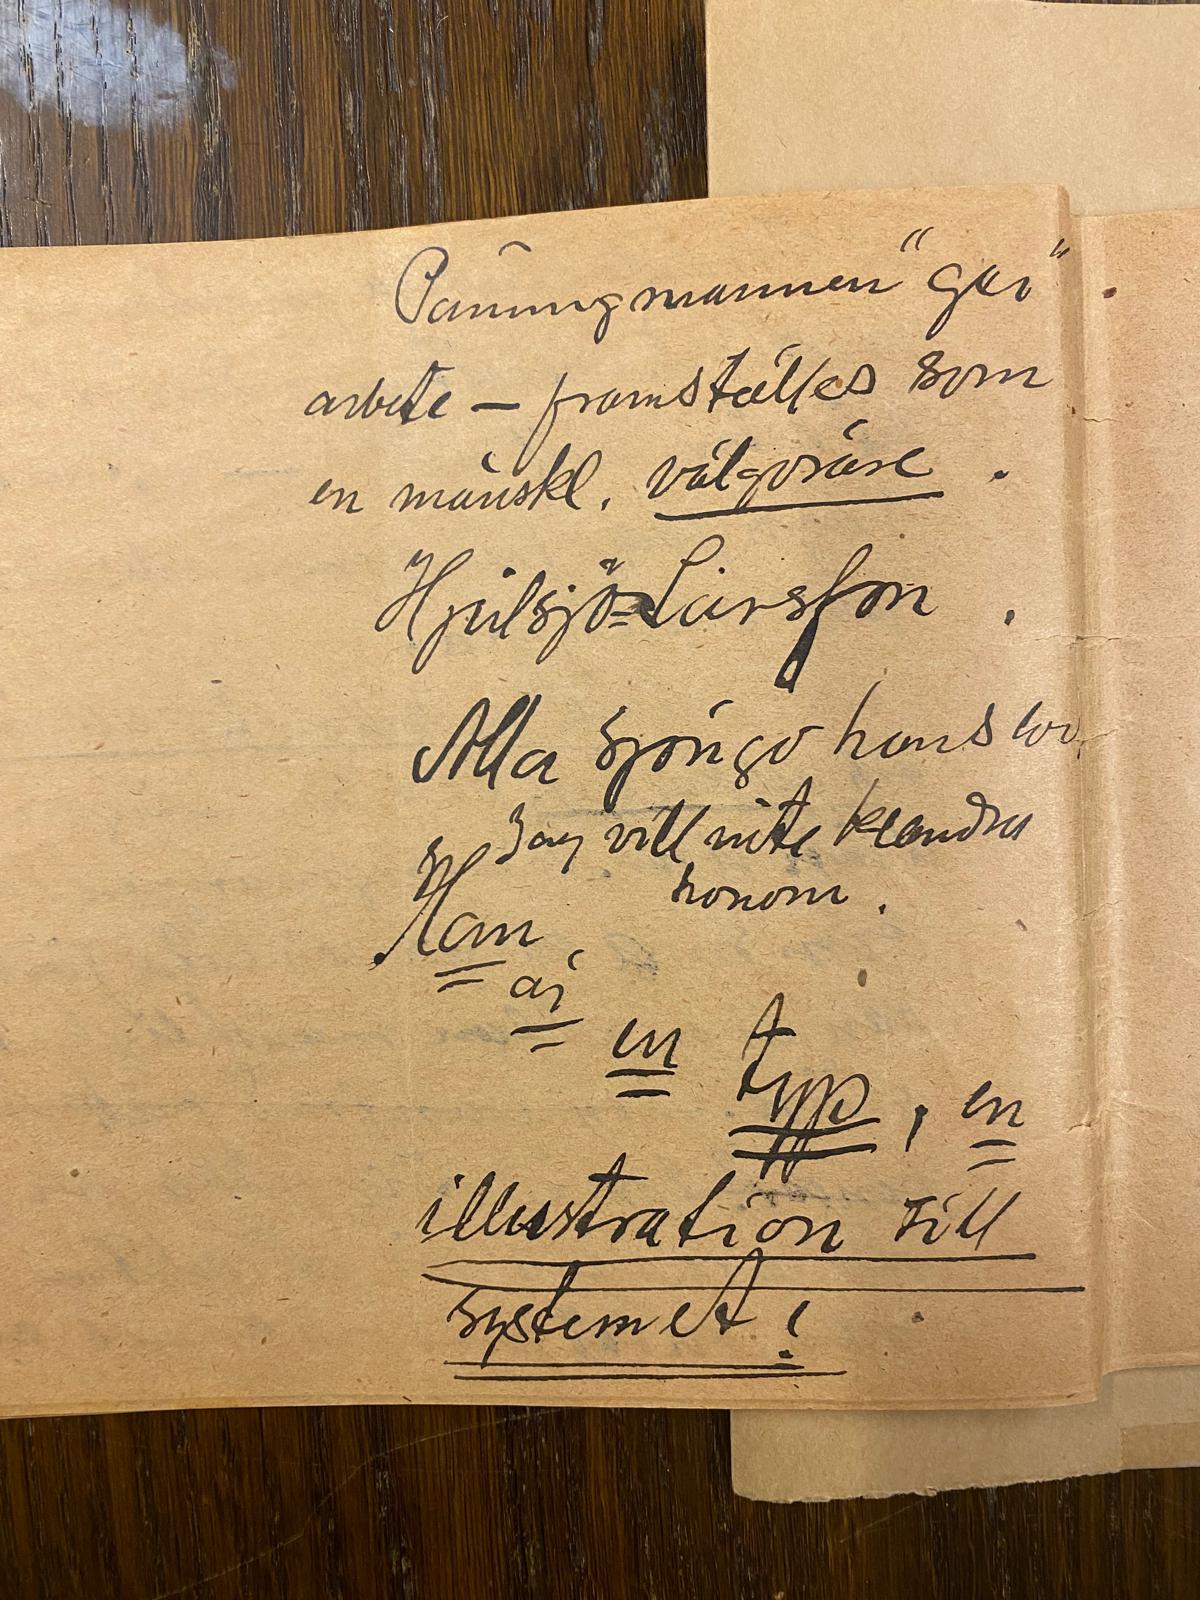 Pänningmannen "ger"
arbete — framställes som
en mänskl. välgörare.
Hjelsjö=Larsson.
Alla sjöngo hans lov
Jag vill inte klandra
honom.
Han
är
en typp, en
illustration till
systemet!